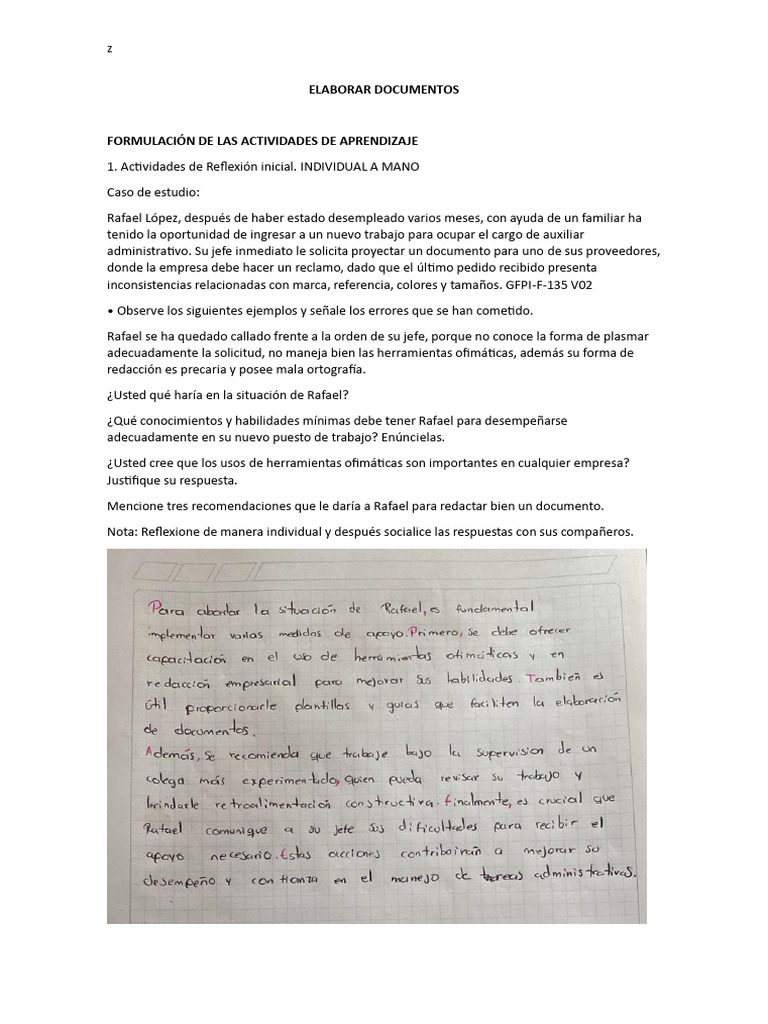 z
ELABORAR DOCUMENTOS
FORMULACIÓN DE LAS ACTIVIDADES DE APRENDIZAJE
1. Actividades de Reflexión inicial. INDIVIDUAL A MANO
Caso de estudio:
Rafael López, después de haber estado desempleado varios meses, con ayuda de un familiar ha
tenido la oportunidad de ingresar a un nuevo trabajo para ocupar el cargo de auxiliar
administrativo. Su jefe inmediato le solicita proyectar un documento para uno de sus proveedores,
donde la empresa debe hacer un reclamo, dado que el último pedido recibido presenta
inconsistencias relacionadas con marca, referencia, colores y tamaños. GFPI-F-135 V02
• Observe los siguientes ejemplos y señale los errores que se han cometido.
Rafael se ha quedado callado frente a la orden de su jefe, porque no conoce la forma de plasmar
adecuadamente la solicitud, no maneja bien las herramientas ofimáticas, además su forma de
redacción es precaria y posee mala ortografía.
¿Usted qué haría en la situación de Rafael?
¿Qué conocimientos y habilidades mínimas debe tener Rafael para desempeñarse
adecuadamente en su nuevo puesto de trabajo? Enúncielas.
¿Usted cree que los usos de herramientas ofimáticas son importantes en cualquier empresa?
Justifique su respuesta.
Mencione tres recomendaciones que le daría a Rafael para redactar bien un documento.
Nota: Reflexione de manera individual y después socialice las respuestas con sus compañeros.
Para abordar la situación de Rafael, es fundamental
implementar varias medidas de apoyo. Primero, se debe ofrecer
capacitación en el uso de herramientas ofimáticas y en
redacción empresarial para mejorar sus habilidades. También es
útil proporcionarle plantillas y guias que faciliten la elaboración
de documentos.
Además, se recomienda que trabaje bajo la supervision de un
colega más experimentado, quien pueda revisar su trabajo y
brindarle retroalimentación constructiva. finalmente, es crucial que
Rafael comunique a su jefe sus dificultades para recibir el
apoyo necesario. Estas acciones contribuirán a mejorar su
desempeño y confianza en el manejo de tareas administrativas.